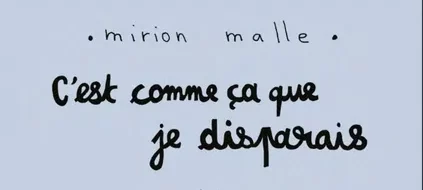 • mirion malle •
C'est comme ça que
je disparais